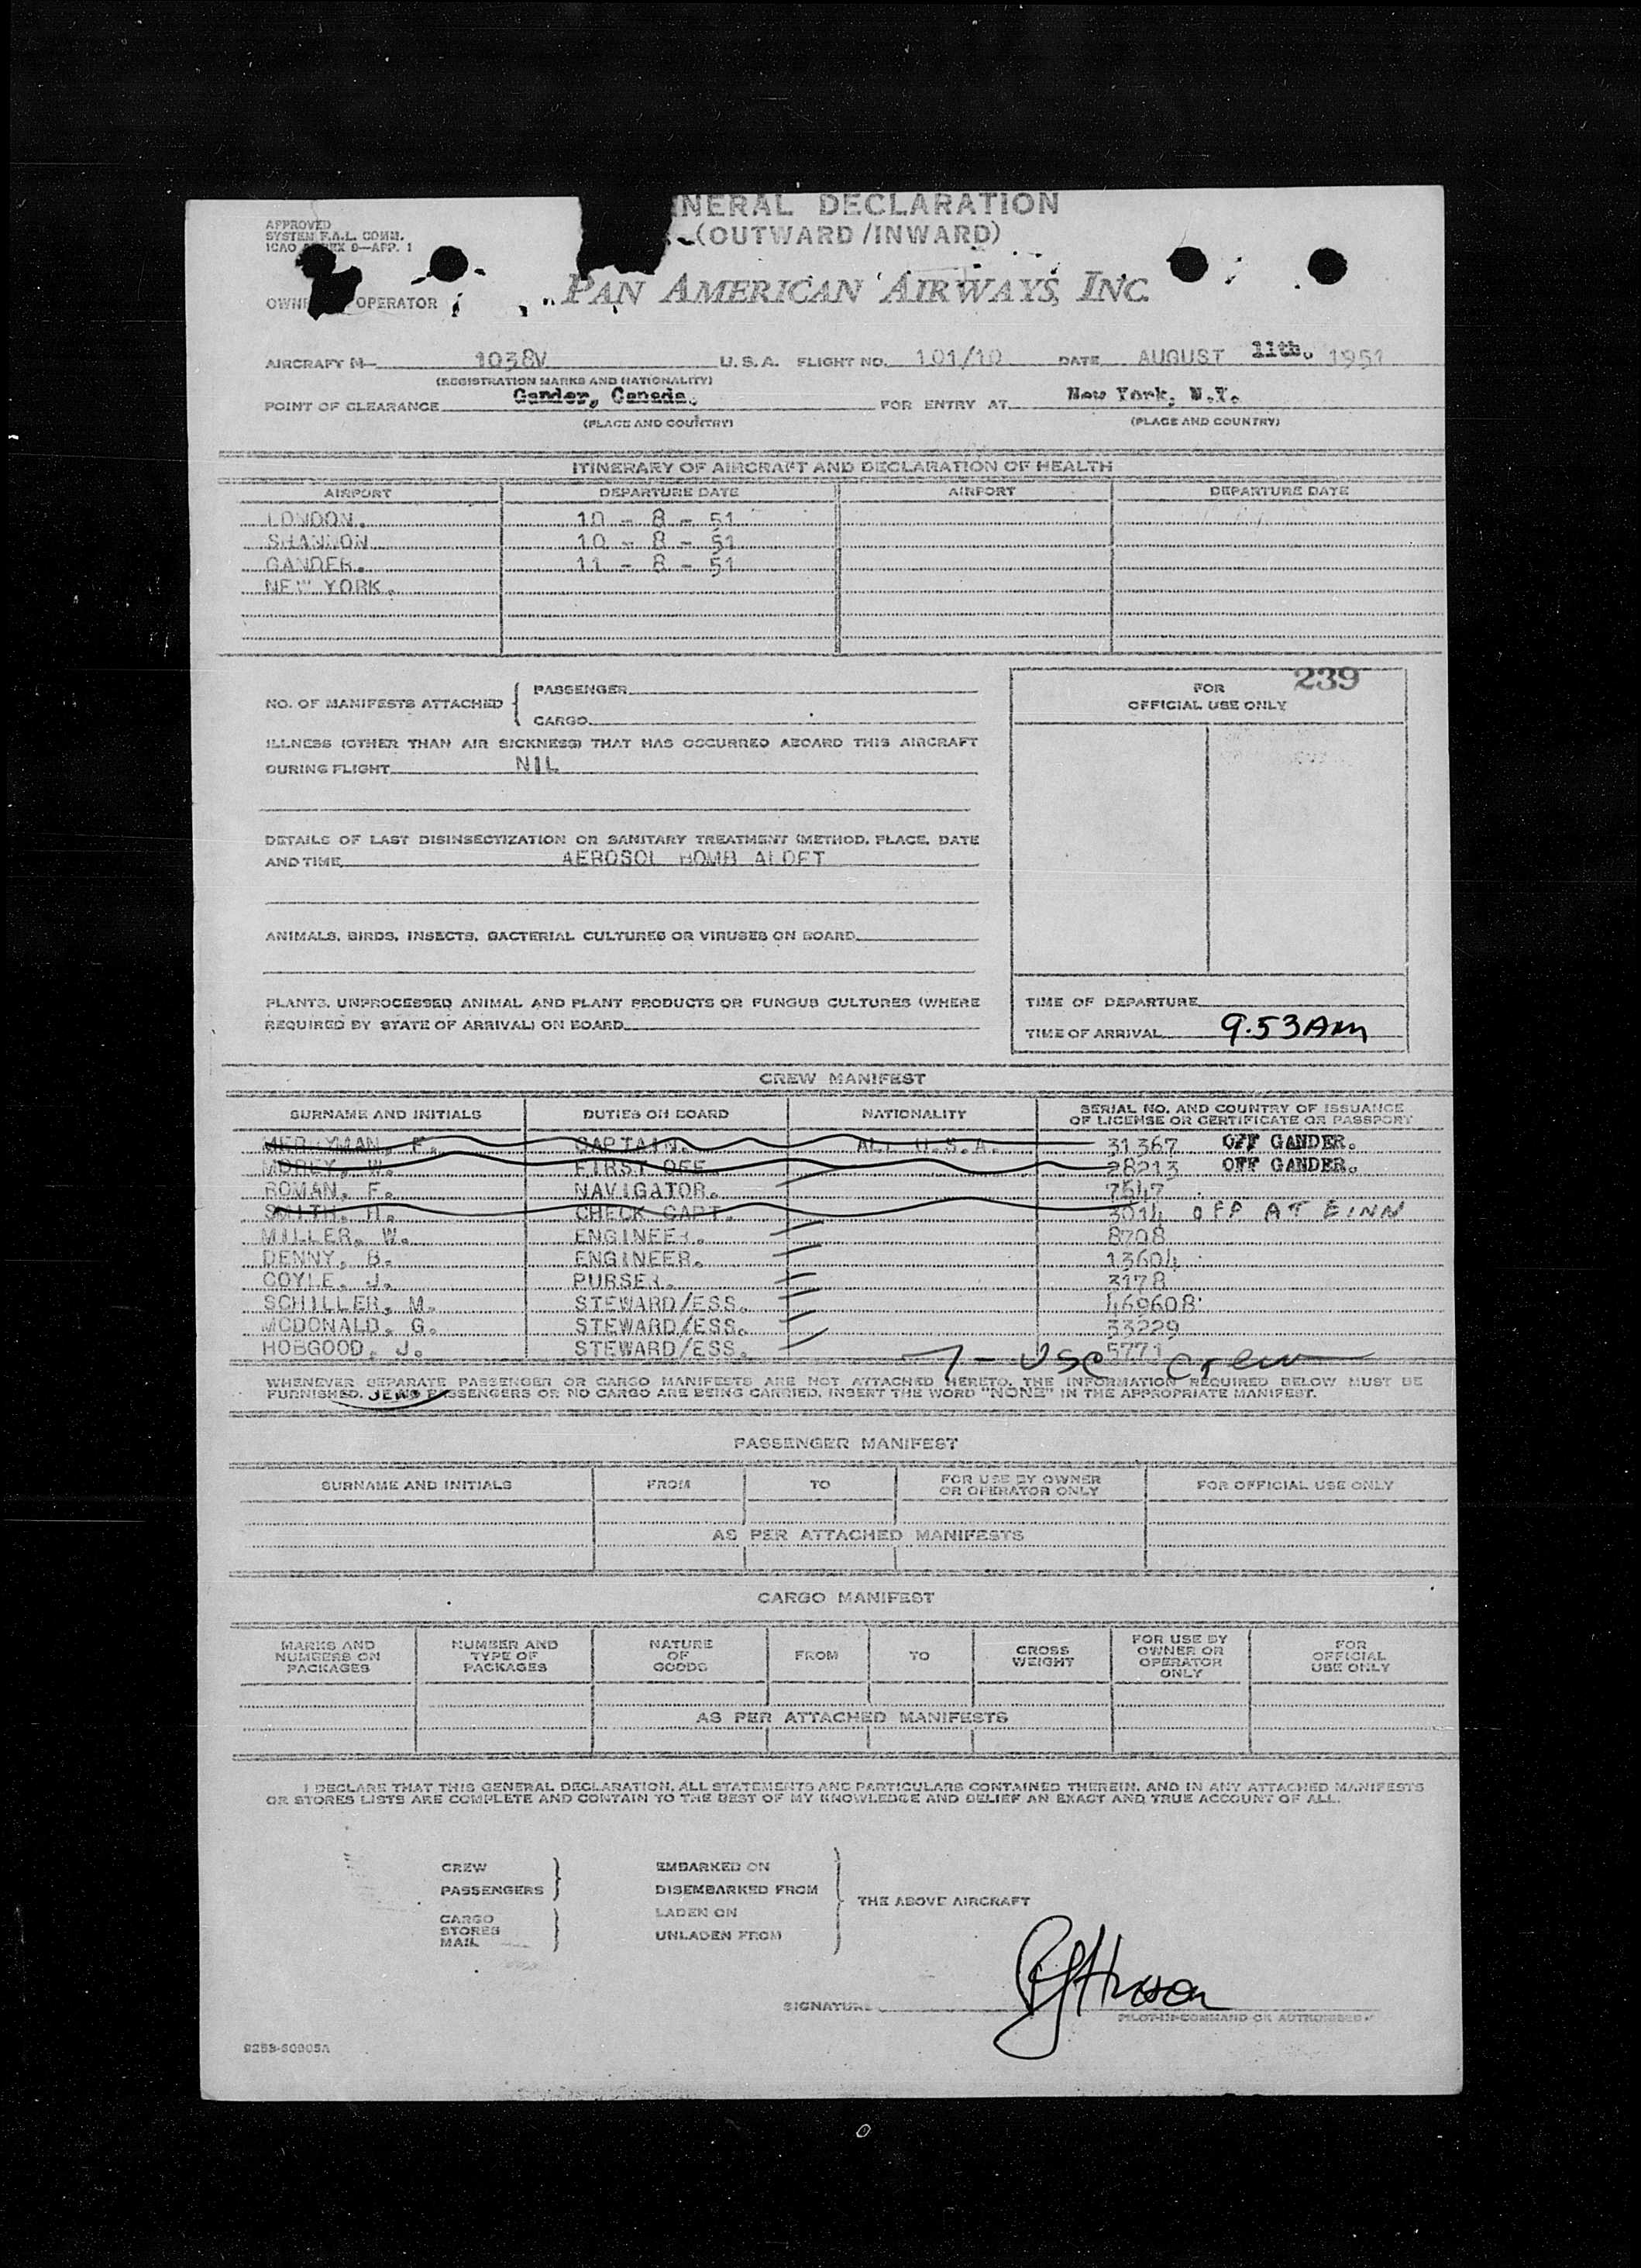 NERAL DECLARATION
APPROVED
SYSTEM F.A.L. COMM.
ICAO EX 9—APP. 1
(OUTWARD/INWARD)
OWNE OPERATOR PAN AMERICAN AIRWAYS, INC.
AIRCRAFT N— 1038V U.S.A. FLIGHT NO. 101/10 DATE AUGUST 11th. 1951
(REGISTRATION MARKS AND NATIONALITY)
POINT OF CLEARANCE Gander, Canada. FOR ENTRY AT New York, N.Y.
(PLACE AND COUNTRY) (PLACE AND COUNTRY)
ITINERARY OF AIRCRAFT AND DECLARATION OF HEALTH
AIRPORT DEPARTURE DATE AIRPORT DEPARTURE DATE
LONDON. 10 - 8 - 51
SHANNON 10 - 8 - 51
GANDER. 11 - 8 - 51
NEW YORK.
239
NO. OF MANIFESTS ATTACHED { PASSENGER
CARGO
FOR
OFFICIAL USE ONLY
ILLNESS (OTHER THAN AIR SICKNESS) THAT HAS OCCURRED ABOARD THIS AIRCRAFT
DURING FLIGHT NIL
DETAILS OF LAST DISINSECTIZATION OR SANITARY TREATMENT (METHOD, PLACE, DATE
AND TIME AEROSOL BOMB ALDET
ANIMALS, BIRDS, INSECTS, BACTERIAL CULTURES OR VIRUSES ON BOARD
PLANTS, UNPROCESSED ANIMAL AND PLANT PRODUCTS OR FUNGUS CULTURES (WHERE
REQUIRED BY STATE OF ARRIVAL) ON BOARD
TIME OF DEPARTURE
TIME OF ARRIVAL 9.53AM
CREW MANIFEST
SURNAME AND INITIALS DUTIES ON BOARD NATIONALITY SERIAL NO. AND COUNTRY OF ISSUANCE
OF LICENSE OR CERTIFICATE OR PASSPORT
MERRYMAN, F. CAPTAIN. ALL U.S.A. 31367 OFF GANDER.
MOREY, W. FIRST OFF 28213 OFF GANDER.
ROMAN, F. NAVIGATOR. 7547
SMITH, H. CHECK CAPT. 3014 OFF AT EINN
MILLER, W. ENGINEER. 8708
DENNY, B. ENGINEER. 13604
COYLE, J. PURSER. 3178
SCHILLER, M. STEWARD/ESS. 469608
MCDONALD, G. STEWARD/ESS. 33229
HOBGOOD, J. STEWARD/ESS. 5771
7 - USC Crew
WHENEVER SEPARATE PASSENGER OR CARGO MANIFESTS ARE NOT ATTACHED HERETO, THE INFORMATION REQUIRED BELOW MUST BE
FURNISHED. PASSENGERS OR NO CARGO ARE BEING CARRIED, INSERT THE WORD "NONE" IN THE APPROPRIATE MANIFEST.
PASSENGER MANIFEST
SURNAME AND INITIALS FROM TO FOR USE BY OWNER
OR OPERATOR ONLY FOR OFFICIAL USE ONLY
AS PER ATTACHED MANIFESTS
CARGO MANIFEST
MARKS AND
NUMBERS ON
PACKAGES
NUMBER AND
TYPE OF
PACKAGES
NATURE
OF
GOODS
FROM
TO
GROSS
WEIGHT
FOR USE BY
OWNER OR
OPERATOR
ONLY
FOR
OFFICIAL
USE ONLY
AS PER ATTACHED MANIFESTS
I DECLARE THAT THIS GENERAL DECLARATION, ALL STATEMENTS AND PARTICULARS CONTAINED THEREIN, AND IN ANY ATTACHED MANIFESTS
OR STORES LISTS ARE COMPLETE AND CONTAIN TO THE BEST OF MY KNOWLEDGE AND BELIEF AN EXACT AND TRUE ACCOUNT OF ALL.
CREW
PASSENGERS
CARGO
STORES
MAIL
EMBARKED ON
DISEMBARKED FROM
LADEN ON
UNLADEN FROM
THE ABOVE AIRCRAFT
SIGNATURE
PILOT-IN-COMMAND OR AUTHORISED